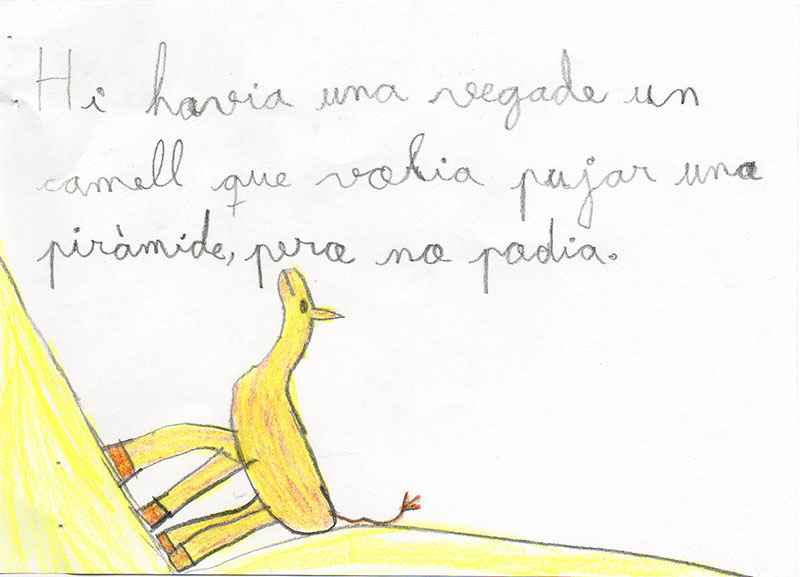 Hi havia una vegade un
camell que volia pujar una
piràmide, pero no podia.